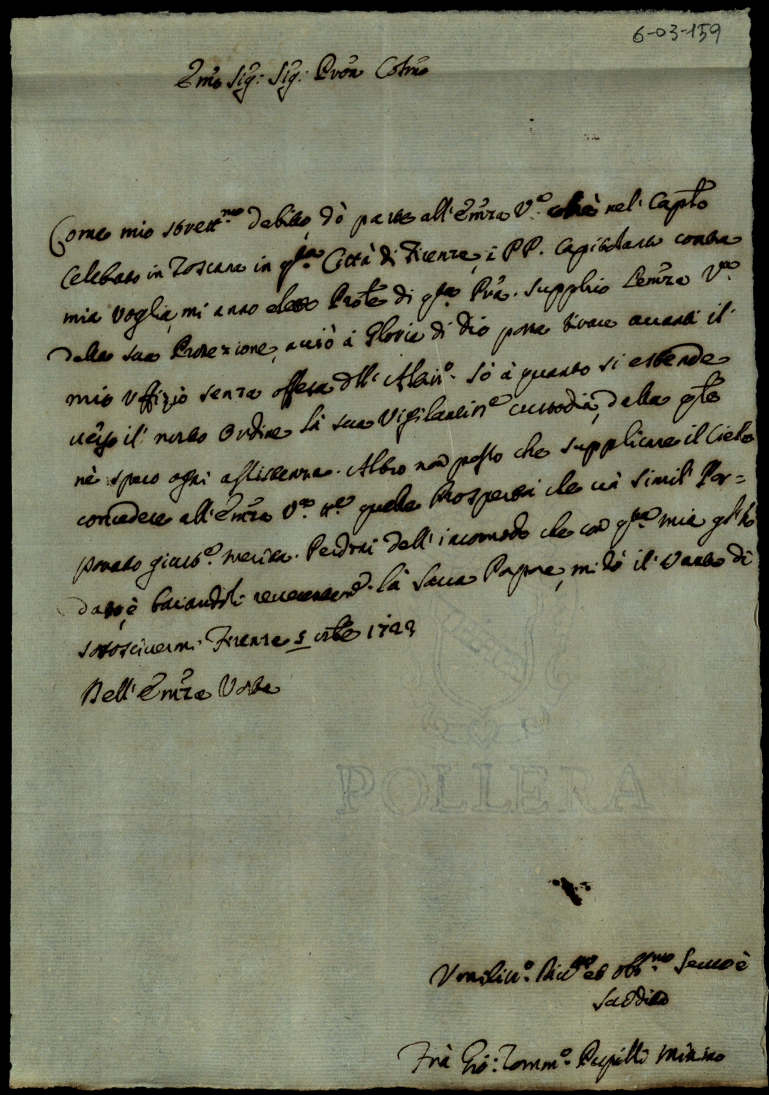 6-03-159
Emo Sig: Sig: Pron Colmo
Come mio strett.mo debito, dò parte all'Emza V.a che nel Caplo
Celebrato in Toscana in qta Città di Firenze, i PP. Capitolari contra
mia voglia, mi anno eletto Prole di qta Pva. Supplico Lemza V.ra
della sua Protezione, acciò à Gloria di Dio possa tirare avanti il
mio Uffizio senza offesa dll'Altis.o Sò à quanto si estende
verso il nostro Ordine là sua Vigilantis.a custodia, della qle
nè spero ogni assistenza. Altro non posso che supplicare il Cielo
concedere all'Emza V.a quelle Prosperità che un simil Por=
porato merita. Perdoni dell'incomodo che con qta mia gl'hò
dato, è baciandoli la Sacra Porpora, mi dò il vanto di
sotoscivermi. Firenze 5 1723
Dell'Emza Vostra
POLLERA
Umilis.o et obb.mo Servo è
Suddito
Frà Gio: Tomm.o Minimo